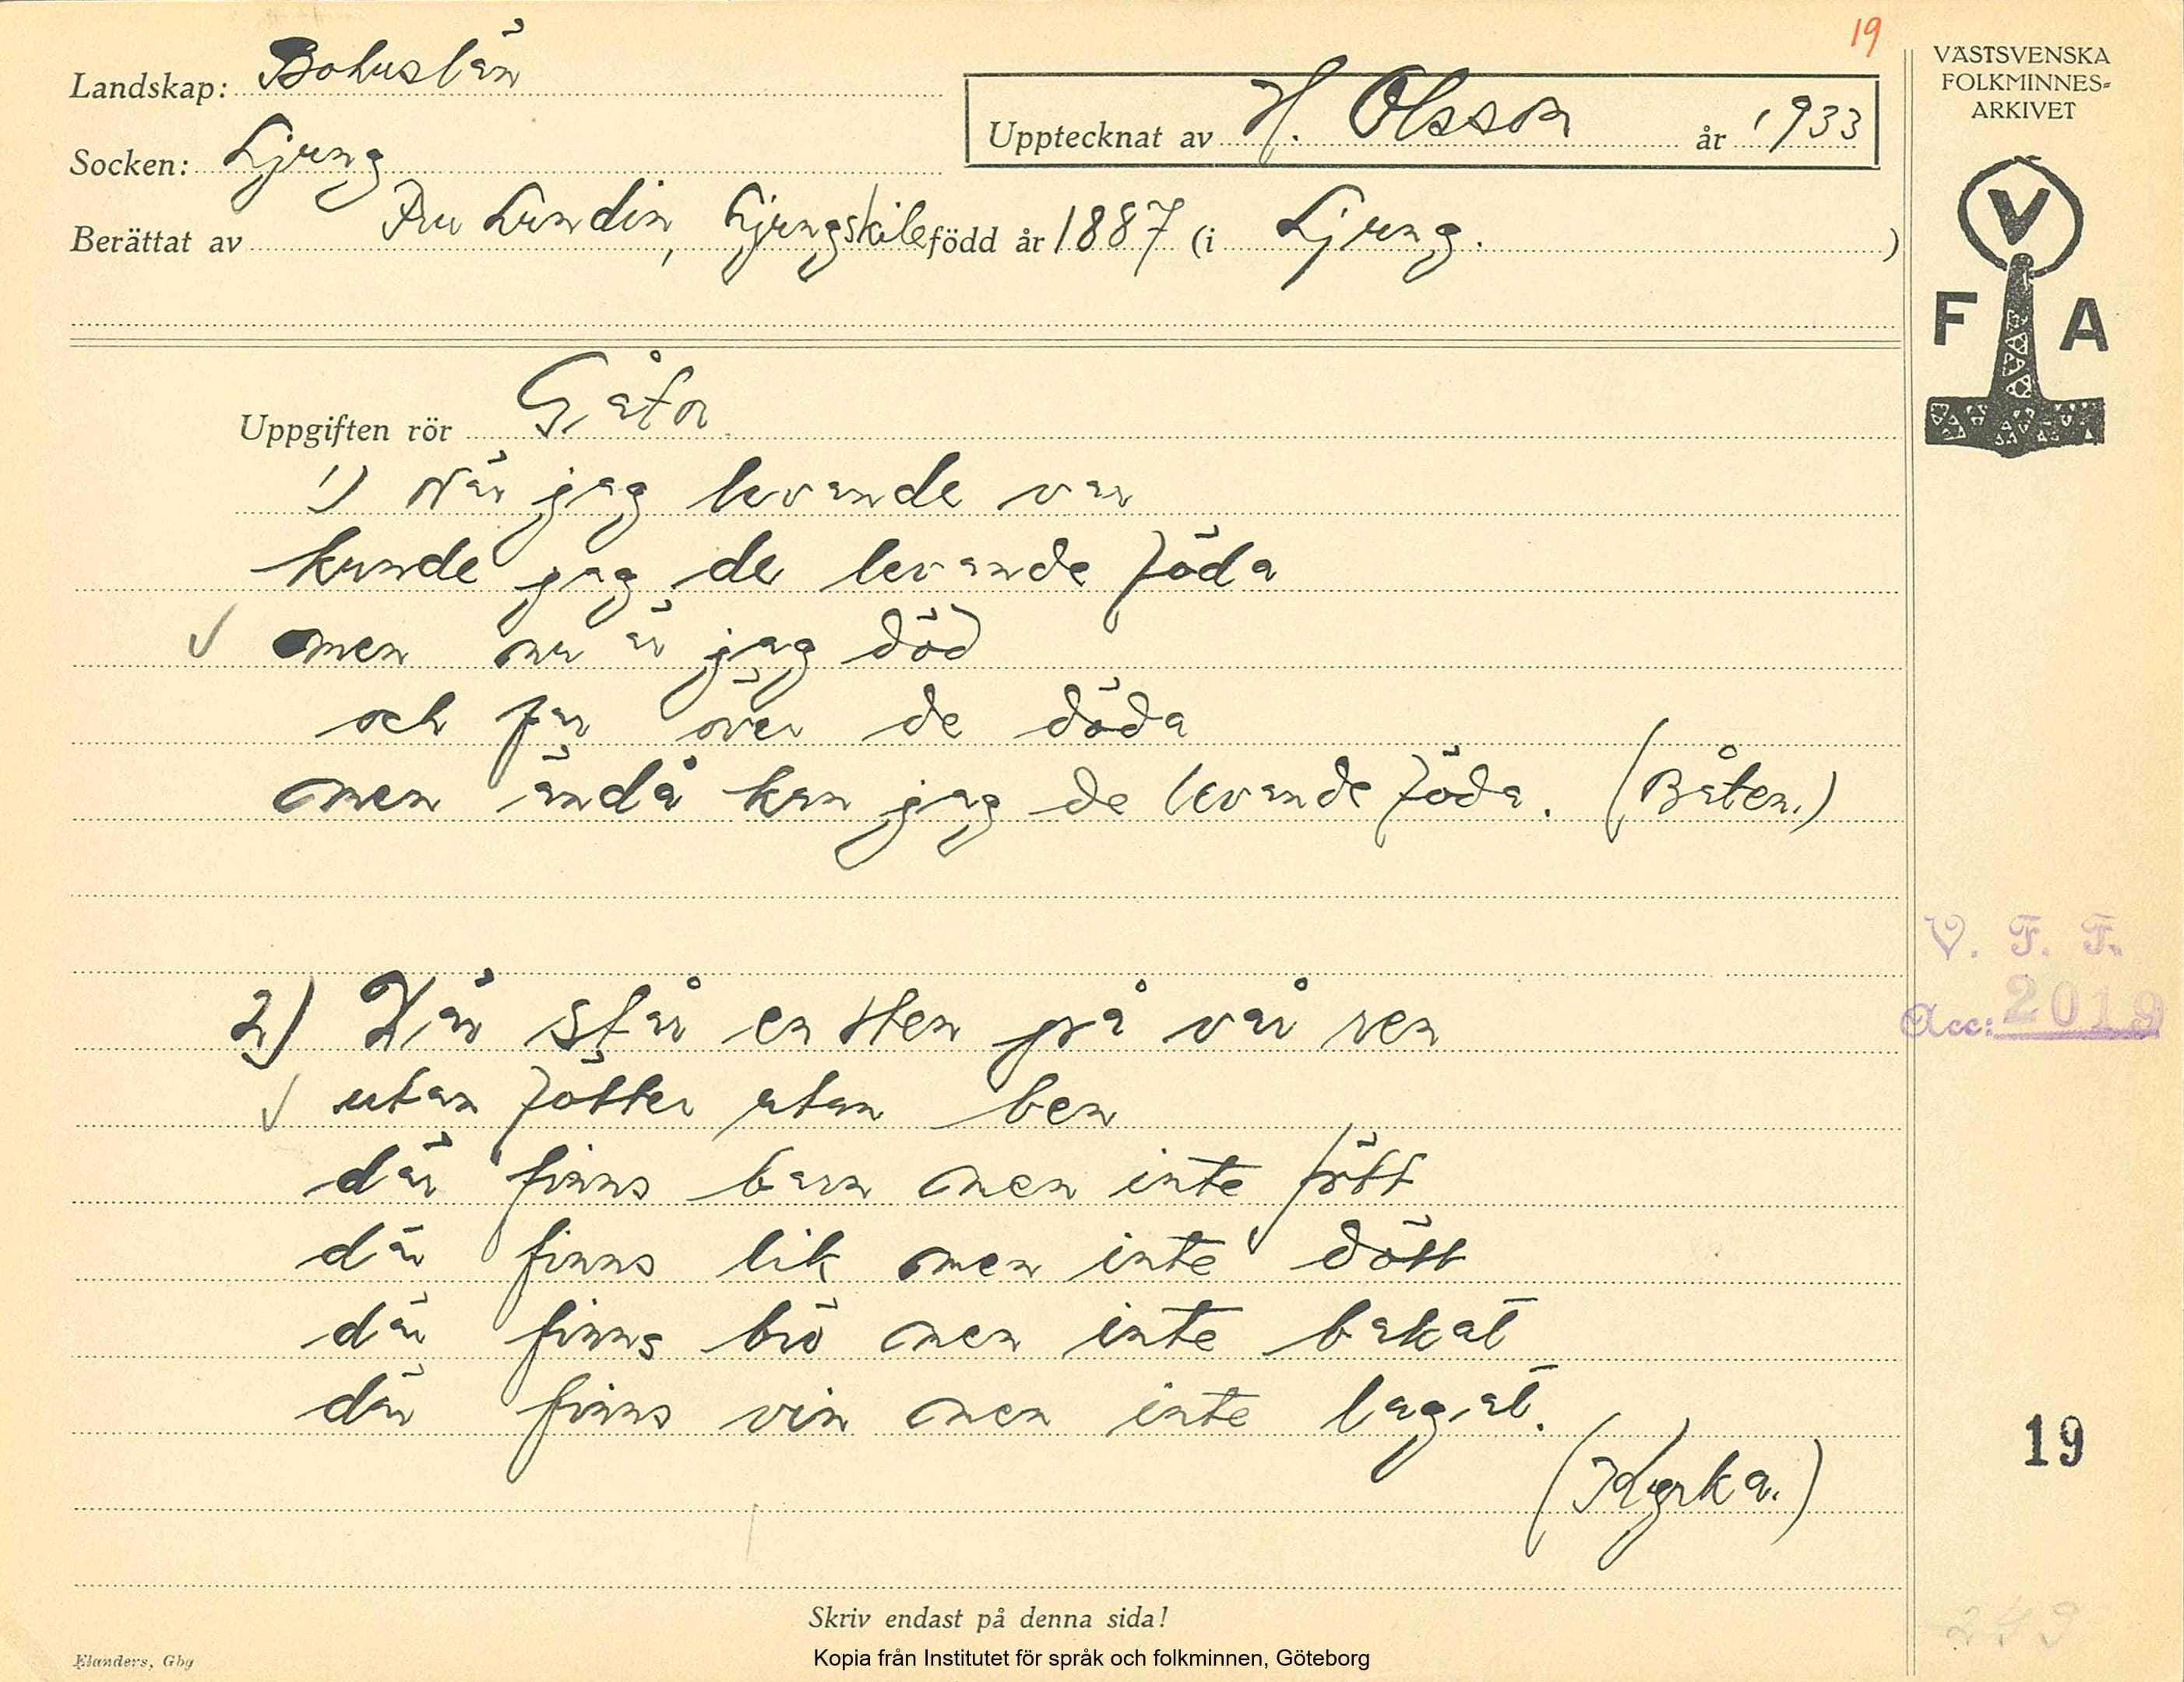 19
Landskap: Bohuslän
Socken: Ljung
Upptecknat av H. Olsson år 1933
Berättat av Fru Lundin, Ljungskile född år 1887 (i Ljung.)
VÄSTSVENSKA
FOLKMINNES-
ARKIVET
V
F A
Uppgiften rör Gåtor.
1) När jag levande var
kunde jag de levande föda
men nu är jag död
och far över de döda
men ändå kan jag de levande föda. (Båten.)
2) Där står en sten på vår ren
utan fötter utan ben
där finns barn men inte fött
där finns lik men inte dött
där finns brö men inte bakat
där finns vin men inte lagat.
(Kyrka.)
V. F. F.
Acc: 2019
19
Skriv endast på denna sida!
Kopia från Institutet för språk och folkminnen, Göteborg
Elanders, Gbg